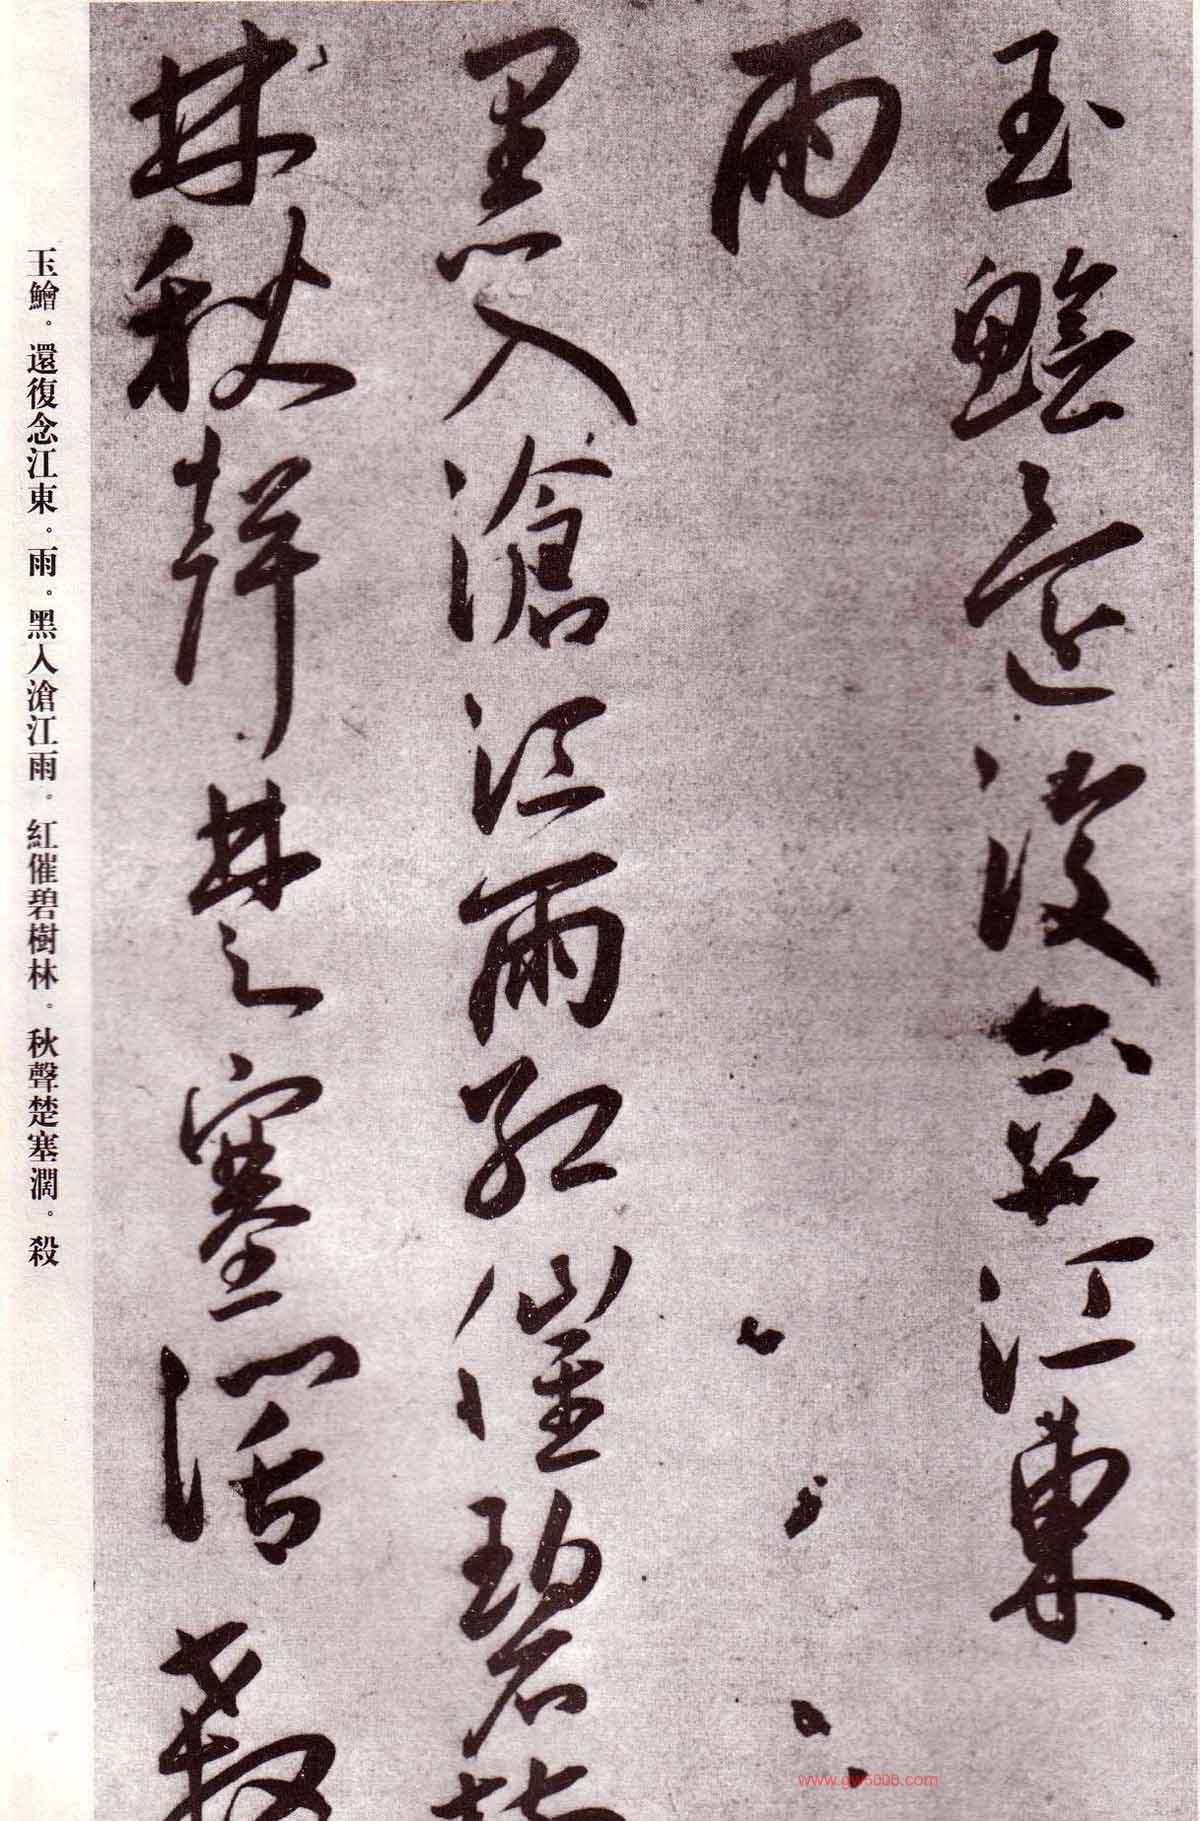 玉鱠還復念江東
雨
黑入滄江雨紅催碧樹
林秋聲楚塞濶殺
玉鱠。還復念江東。雨。黑入滄江雨。紅催碧樹林。秋聲楚塞濶。殺
www.gw5000.com